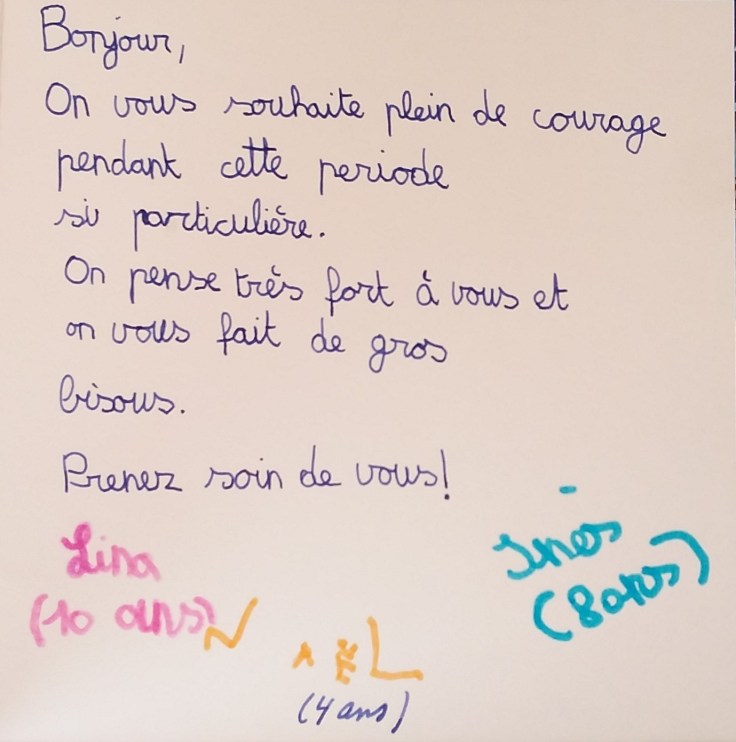 Bonjour,
On vous souhaite plein de courage
pendant cette periode
si particulière.
On pense très fort à vous et
on vous fait de gros
bisous.
Prenez soin de vous!
Lina
(10 ans)
NAËL
(4 ans)
Inès
(8 ans)